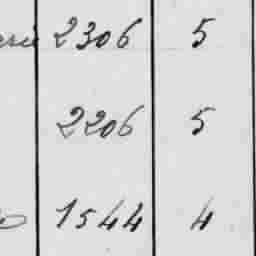 2306 5
2206 5
1544 4